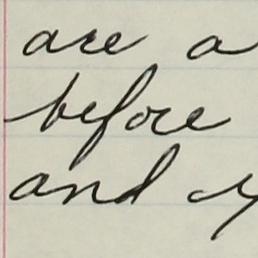 are a
before
and